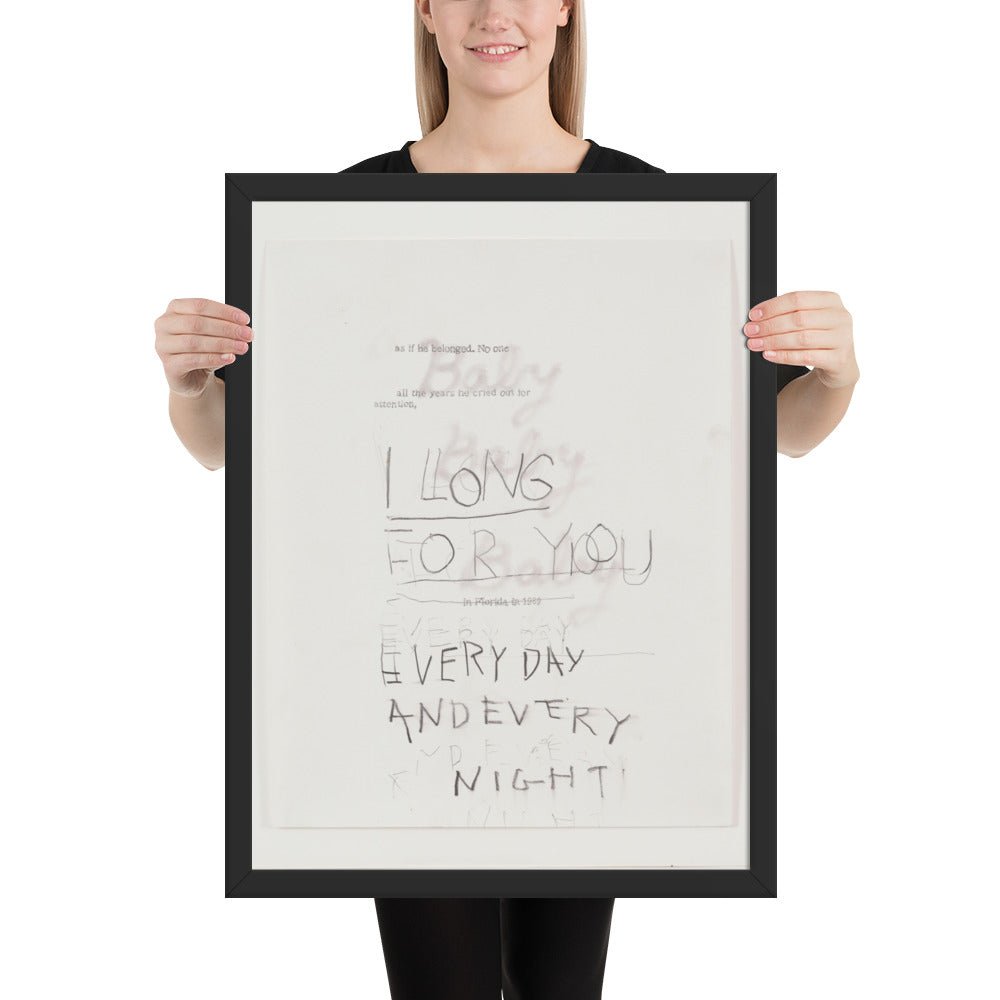 as if he belonged. No one
Baby
all the years he cried out for
attention,
Baby
I LONG
FOR YOU
Baby
in Florida in 1989
EVERY DAY
EVERY DAY
AND EVERY
NIGHT